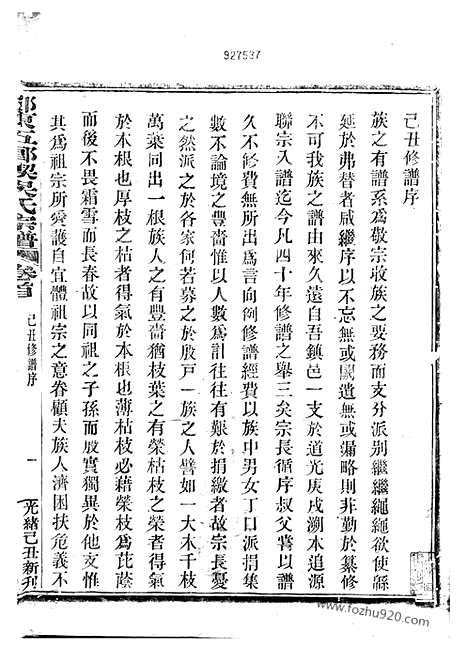 927537
己丑修譜序
族之有譜系爲敬宗收族之要務而支分派別繼繼繩繩欲使緜
延於弗替者咸繼序以不忘無或闕遺無或漏略則非勤於纂修
不可我族之譜由來久遠自吾鎮邑一支於道光庚戌溯本追源
聯宗入譜迄今凡四十年修譜之舉三矣宗長循序叔父嘗以譜
久不修費無所出爲言向例修譜經費以族中男女丁口派捐集
數不論境之豐嗇惟以人數爲計往往有艱於捐繳者故宗長憂
之然派之於各家何若募之於殷戶一族之人譬如一大木千枝
萬葉同出一根族人之有豐嗇猶枝葉之有榮枯枝之榮者得氣
於本根也厚枝之枯者得氣於本根也薄枯枝必藉榮枝爲芘蔭
而後不畏霜雪而長春故以同祖之子孫而殷實獨異於他支惟
其爲祖宗所愛護自宜體祖宗之意眷顧夫族人濟困扶危義不
吳氏宗譜
卷首
己丑修譜序
一
光緒己丑新刊
www.fozhu920.com